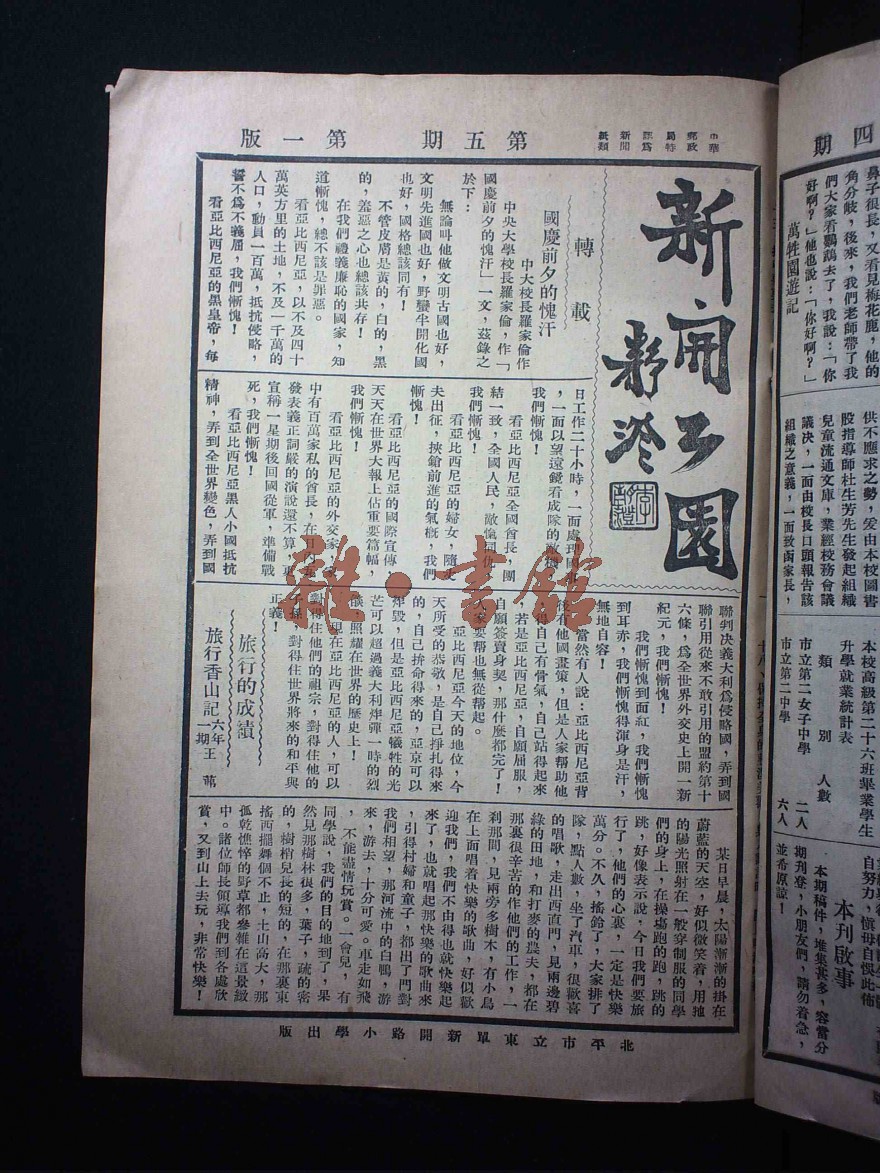 中華
郵政
局特
許為
新聞
紙類
第五期
第一版
新開子園
轉載
國慶前夕的愧汗
中大校長羅家倫作
中央大學校長羅家倫,作「
國慶前夕的愧汗」一文,茲錄之
於下:
無論叫他做文明古國也好,
文明先進國也好,野蠻半開化國
也好,國格總該同有!
不管皮膚是黃的,白的,黑
的,羞惡之心也總該共存!
在我們禮義廉恥的國家,知
道慚愧,總不該是罪惡。
看亞比西尼亞,以不及四十
萬英方里的土地,不及一千萬的
人口,動員一百萬,抵抗侵略,
誓不為不義屈,我們慚愧!
看亞比西尼亞的黑皇帝,每
日工作二十小時,一面處理國
,一面以望遠鏡看成隊的敵機
我們慚愧!
看亞比西尼亞全國酋長,團
結一致,全國人民,敵愾同仇
我們慚愧!
看亞比西尼亞的婦女,隨丈
夫出征,挾鎗前進的氣概,我們
慚愧!
看亞比西尼亞的國際宣傳,
天天在世界大報上佔重要篇幅,
我們慚愧!
看亞比西尼亞的外交家,家
中有百萬家私的酋長,在日內瓦
發表義正詞嚴的演說還不算,更
宣稱一星期後回國從軍,準備戰
死,我們慚愧!
看亞比西尼亞黑人小國抵抗
精神,弄到全世界變色,弄到國
聯判決義大利為侵略國,弄到國
聯引用從來不敢引用的盟約第十
六條,為全世界外交史上開一新
紀元,我們慚愧!
我們慚愧到面紅,我們慚愧
到耳赤,我們慚愧得渾身是汗,
無地自容!
當然有人說:亞比西尼亞背
後有他國畫策,但是人家幫助他
得自己有骨氣,自己站得起來
,若是亞比西尼亞,自願屈服,
自願簽賣身契,那什麼都完了!
人家要幫也無從幫起。
亞比西尼亞今天的地位,今
天所受的恭敬,是自己掙扎得來
的,自己拚命得來的,亞京可以
炸毀,但是亞比西尼亞犧牲的光
芒可以超過義大利炸彈一時的烈
燄,照耀在世界的歷史上!
現在亞比西尼亞的人,可以
對得住他們的祖宗,對得住他的
子孫,對得住世界將來的和平與
正義!
旅行的成績
旅行香山記 六年一期 王
某日早晨,太陽漸漸的掛在
蔚藍的天空,好似微笑着,用她
的陽光照射在一般穿制服的同學
們的身上,在操場跑的跑,跳的
跳,好像表示說,今日我們要旅
行了,他們的心裏,一定是快樂
萬分。不久,搖鈴了,大家排了
隊,點人數,坐了汽車,很歡喜
的唱歌,走出西直門,見兩邊碧
綠的田地,和打麥的農夫,都在
那裏很辛苦的作他們的工作,一
剎那間,見兩旁多樹木,有小鳥
在上面唱着快樂的歌曲,好似歡
迎我們,我們不由得也就快樂起
來了,也就唱起那快樂的歌曲來
,引得村婦和童子,都出了門對
我們相望,那河流中的白鴨,游
來,游去,十分可愛。車走如飛
,不能盡情玩賞。一會兒,有
同學說,我們的目的地到了,果
然見那樹林很多,葉子,疏的密
的,樹梢兒長的短的,在那裏東
搖西擺舞個不止,土山高大,那
孤乾憔悴的野草都參雜在這景緻
中。諸位師長領導我們到各處欣
賞,又到山上去玩,非常快樂!
北平市立東單新開路小學出版
四期
鼻子很長,又看見梅花鹿,他的
角分岐,後來,我們老師帶了我
們大家看鸚鵡去了,我說:「你
好啊?」他也說:「你好啊?」
萬牲園遊記
供不應求之勢,爰由本校圖書
股指導師杜生芳先生發起組織
兒童流通文庫,業經校務會議
議決,一面由校長口頭報告該
組織之意義,一面致函家長,
本校高級第二十六班畢業學生
升學就業統計表
類別 人數
市立第二女子中學 二人
市立第二中學 六人
自努力,愼毋自悞此佈
本刊啟事
本期稿件,堆集甚多,容當分
期刊登,小朋友們,請勿着急,
並希原諒!
雜·書館